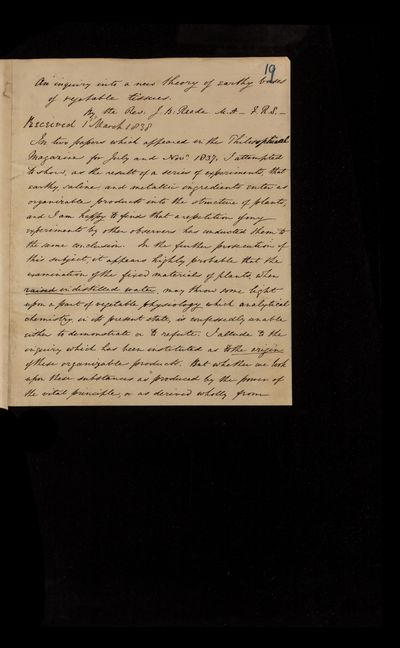 19
An inquiry into a new theory of earthy bases
of vegetable tissues.
By the Rev. J. B. Reade M.A. F.R.S.
Received 1 March 1838
In two papers which appeared in the Philosophical
Magazine for July and Novr. 1837, I attempted
to show, as the result of a series of experiments, that
earthy, saline and metallic ingredients enter as
organizable products into the structure of plants,
and I am happy to find that a repetition of my
experiments by other observers has conducted them to
the same conclusion. In the further prosecution of
this subject, it appears highly probable that the
examination of the fixed materials of plants, when
raised in distilled water, may throw some light
upon a part of vegetable physiology which analytical
chemistry, in its present state, is confessedly unable
either to demonstrate or to refute. I allude to the
inquiry which has been instituted as to the origin
of these organizable products. But whether we look
upon these substances as produced by the power of
the vital principle, or as derived wholly from